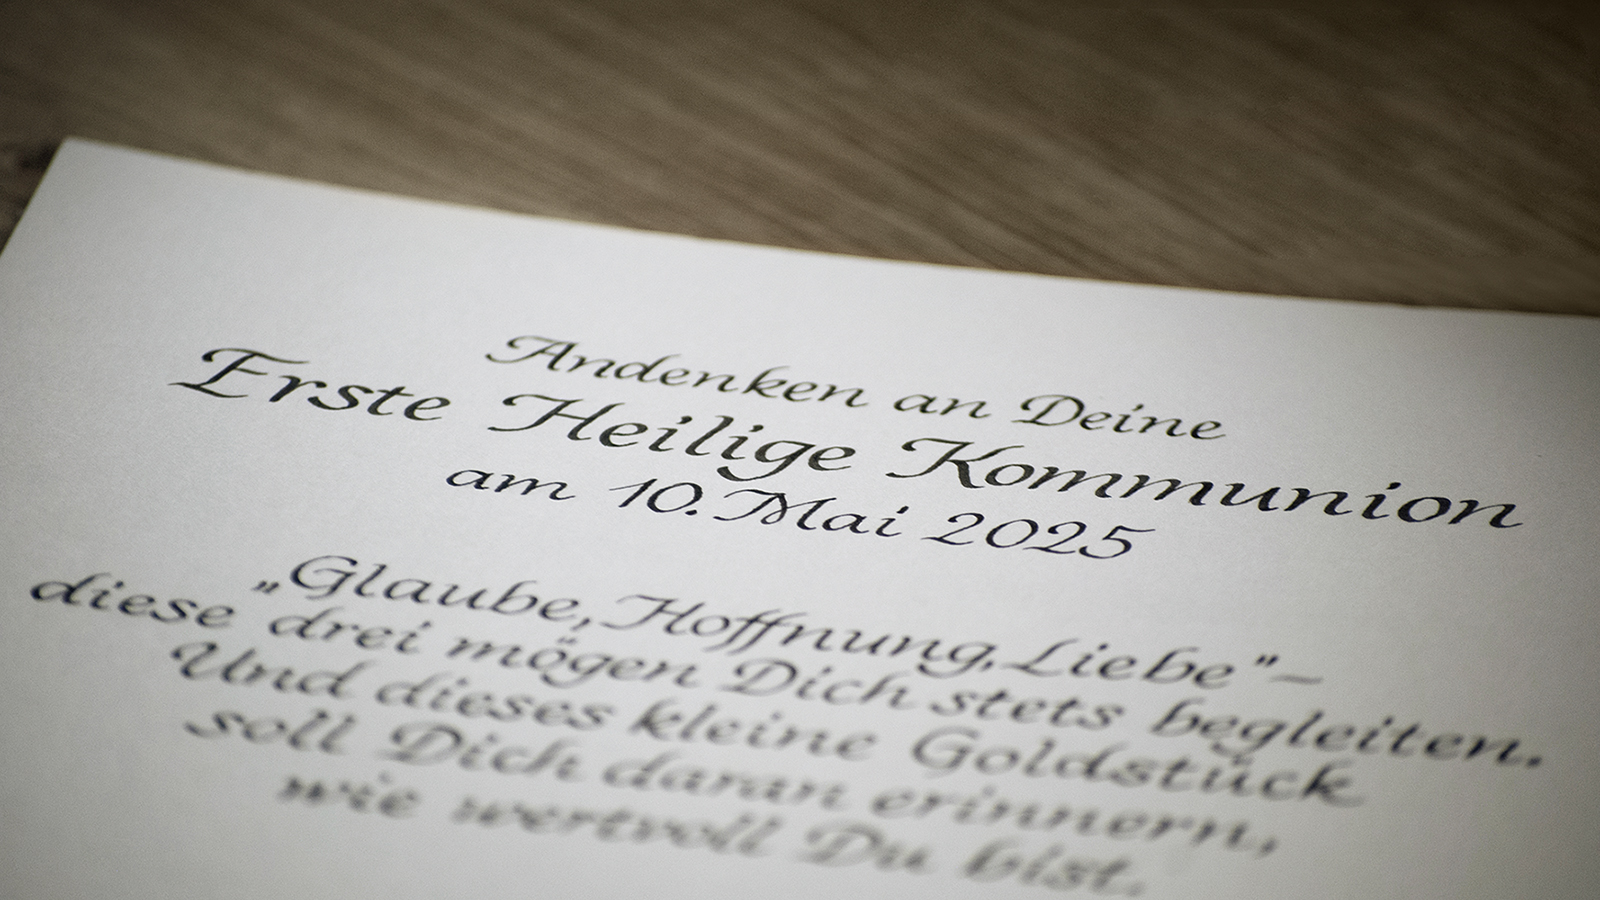 Andenken an Deine
Erste Heilige Kommunion
am 10. Mai 2025
„Glaube, Hoffnung, Liebe" –
diese drei mögen Dich stets begleiten.
Und dieses kleine Goldstück
soll Dich daran erinnern,
wie wertvoll Du bist.